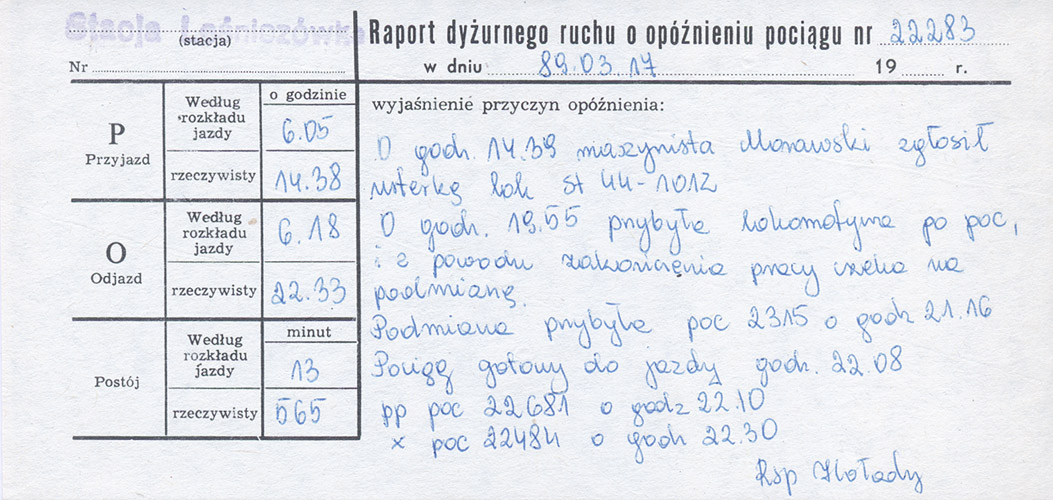 Stacja Leśniczówka
(stacja)
Raport dyżurnego ruchu o opóźnieniu pociągu nr 22283
Nr
w dniu 89.03.17 19 r.
P
Przyjazd
Według rozkładu jazdy
o godzinie
6.05
rzeczywisty
14.38
O
Odjazd
Według rozkładu jazdy
6.18
rzeczywisty
22.33
Postój
Według rozkładu jazdy
minut
13
rzeczywisty
565
wyjaśnienie przyczyn opóźnienia:
O godz. 14.39 maszynista Morawski zgłosił
usterkę lok St 44-1012
O godz. 19.55 przybyła lokomotywa po poc,
i z powodu zakończenia pracy czeka na
podmianę.
Podmiana przybyła poc 2315 o godz 21.16
Pociąg gotowy do jazdy godz. 22.08
pp poc 22681 o godz 22.10
x poc 22484 o godz 22.30